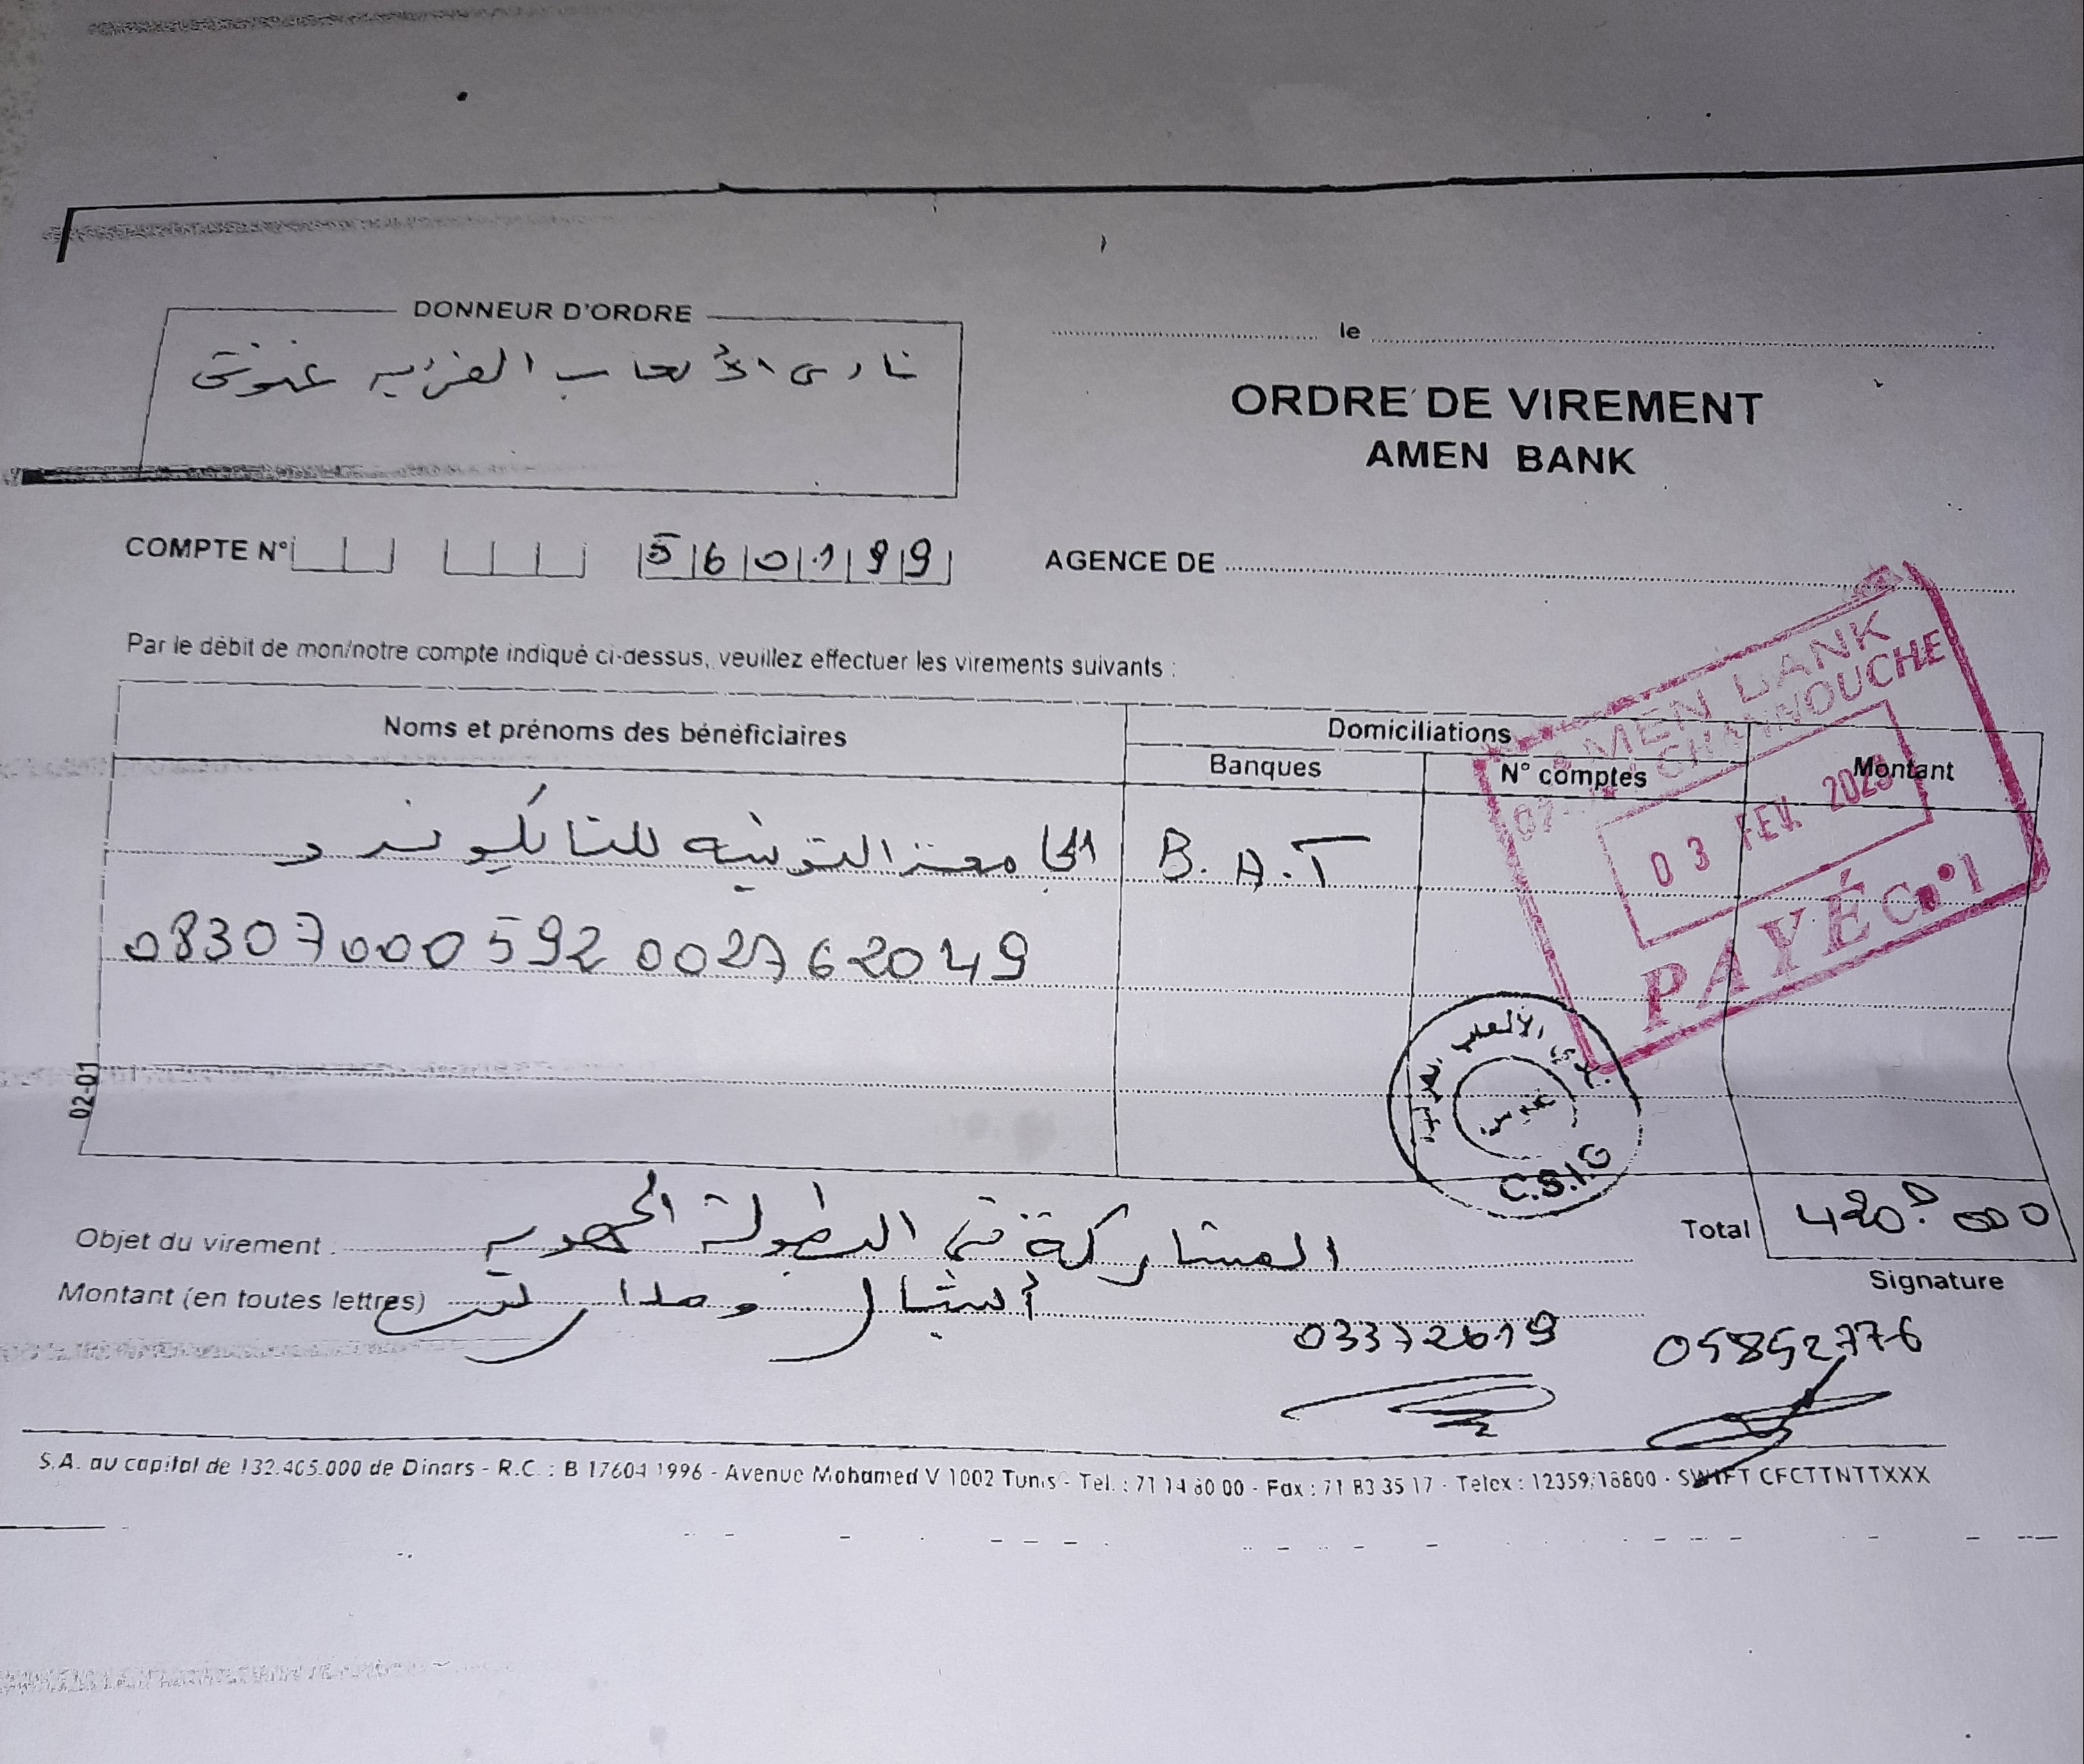 DONNEUR D'ORDRE
نادي الألعاب الفردية غنوش
le
ORDRE DE VIREMENT
AMEN BANK
COMPTE N° 560199
AGENCE DE
Par le débit de mon/notre compte indiqué ci-dessus, veuillez effectuer les virements suivants :
Noms et prénoms des bénéficiaires
Domiciliations
Banques
N° comptes
Montant
الجامعة التونسية للتايكوندو
B.A.T
08307000592002762049
AMEN BANK
GHANNOUCHE
03 FEV. 2023
PAYÉ C n° 1
نادي الألعاب الفردية
غنوش
C.S.I.G
02-01
Objet du virement المشاركة في البطولة الجهوية
Total 420D000
Montant (en toutes lettres) أشبال
Signature
03372619
05852776
S.A. au capital de 132.405.000 de Dinars - R.C. : B 17604 1996 - Avenue Mohamed V 1002 Tunis - Tel. : 71 14 80 00 - Fax : 71 83 35 17 - Telex : 12359/18800 - SWIFT CFCTTNTTXXX